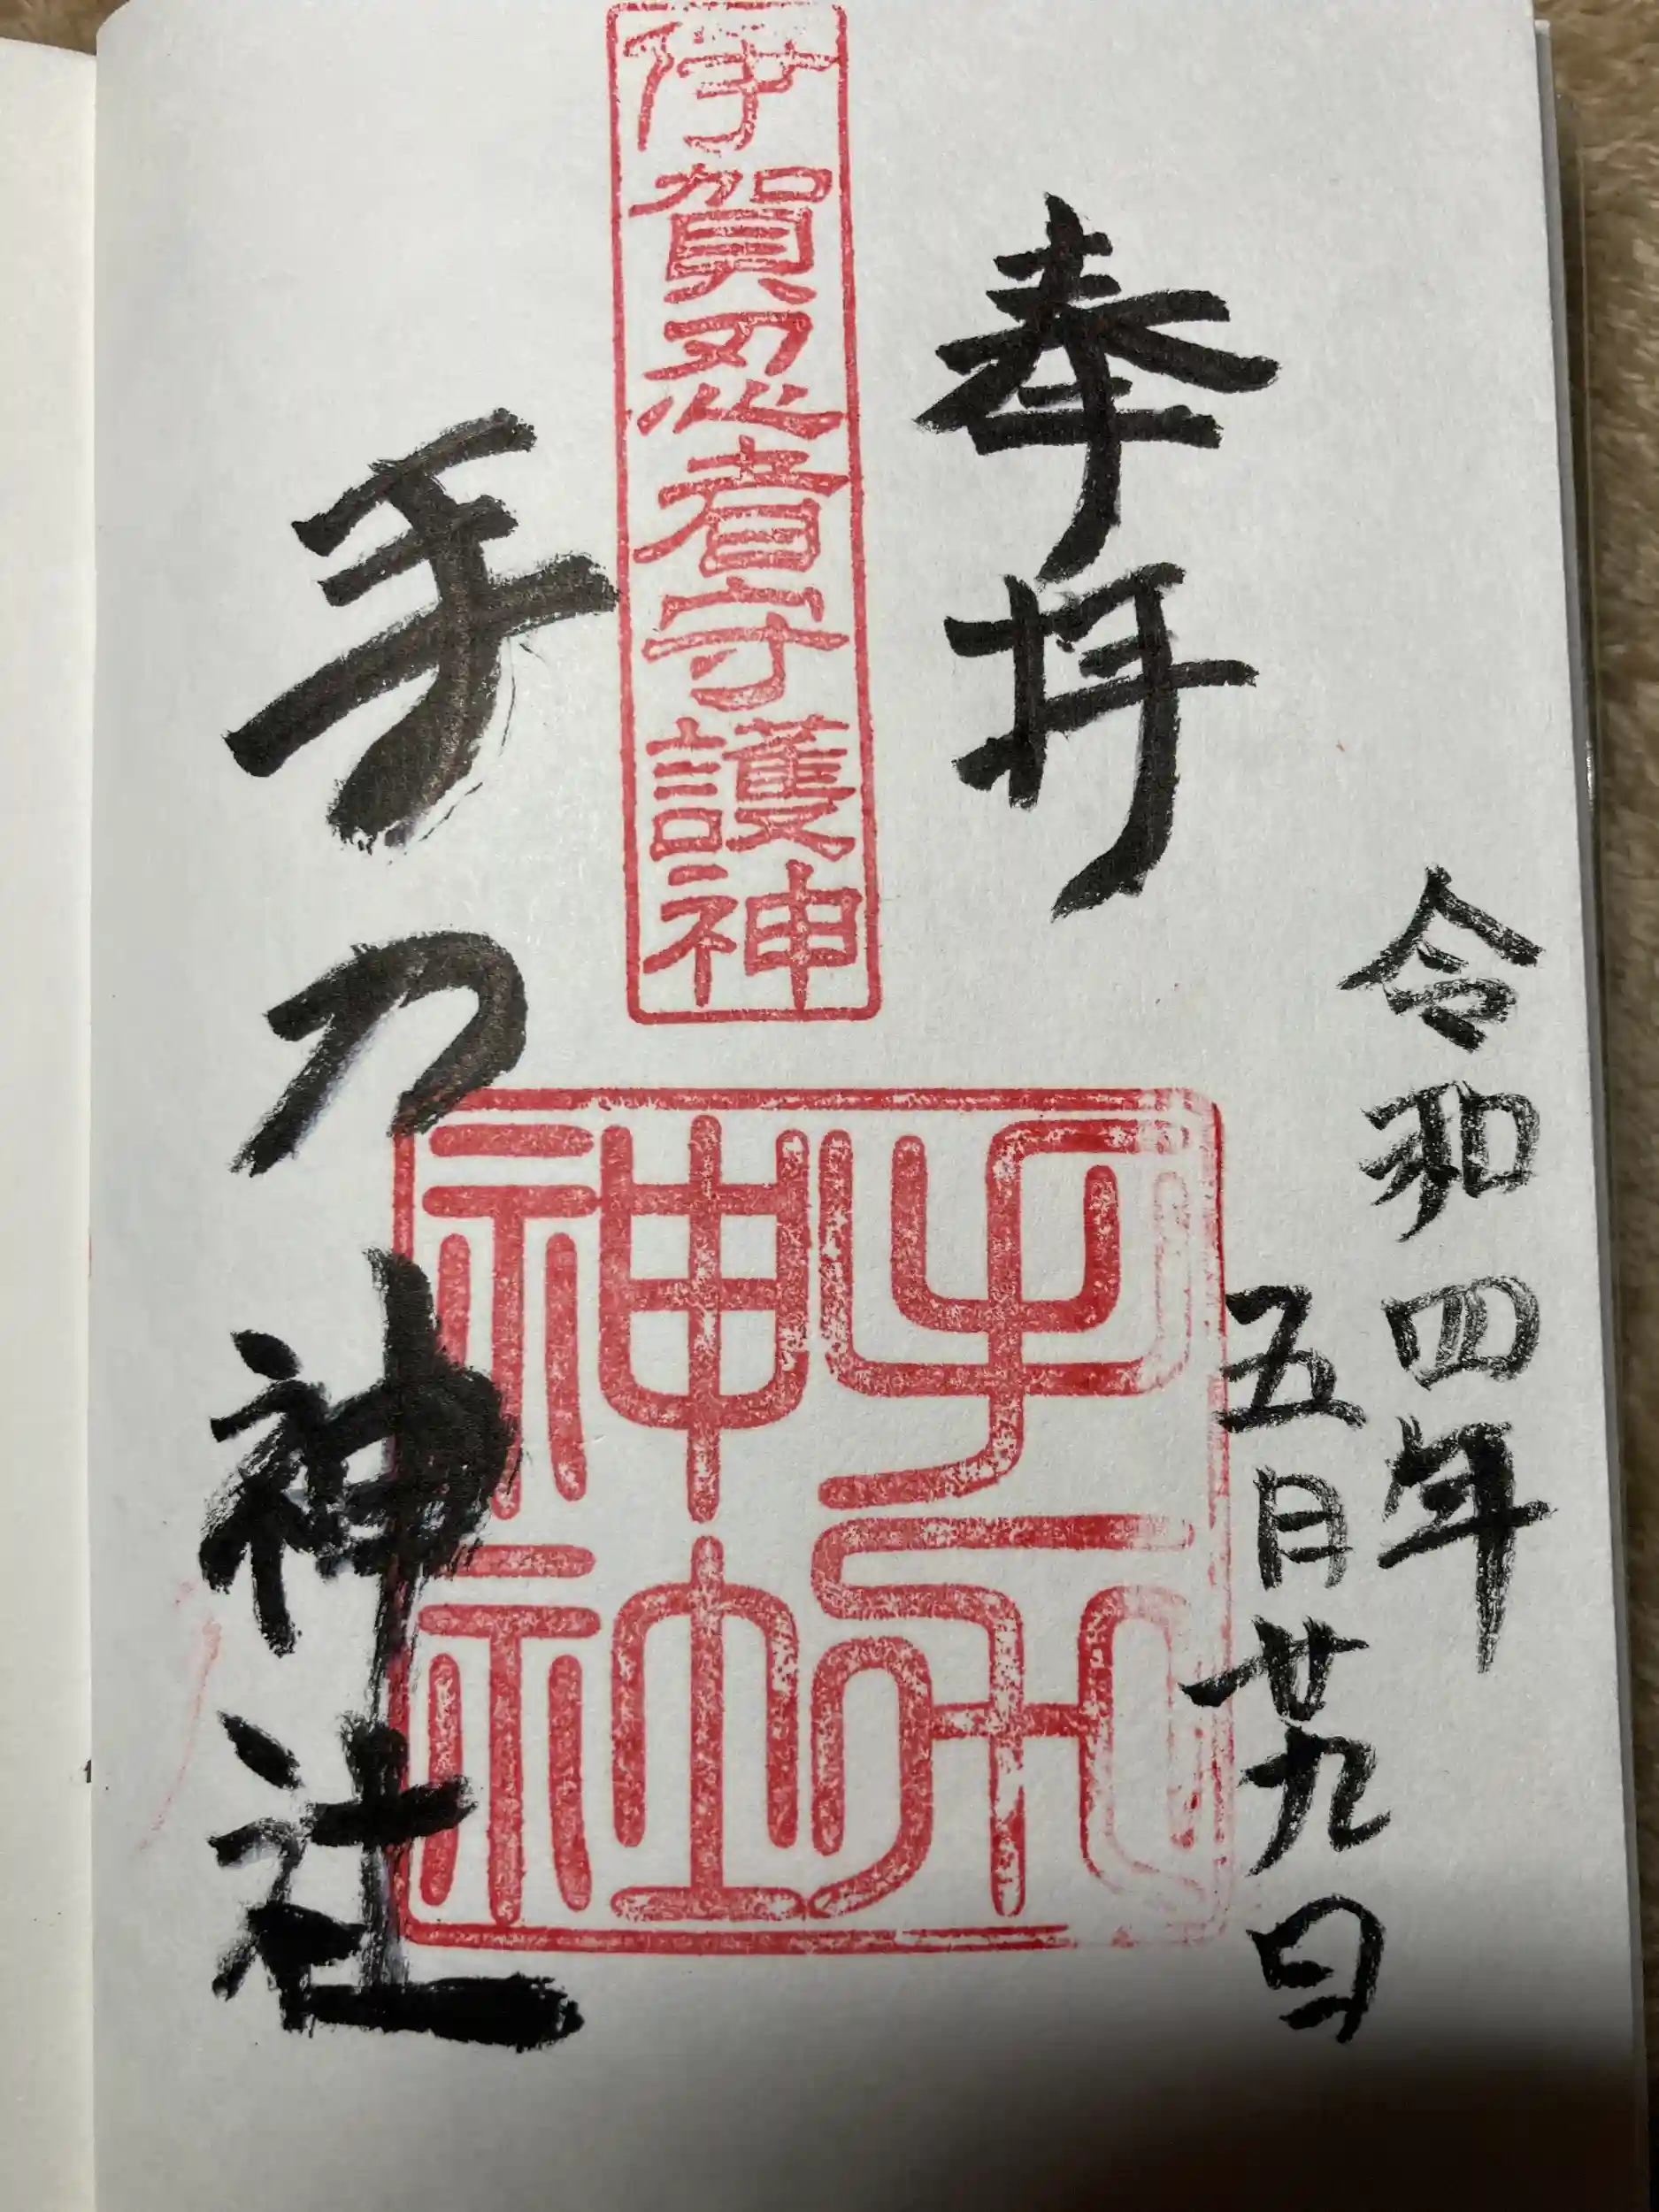 令和四年
五月廿九日
奉拝
伊賀忍者守護神
手力神社
手力神社